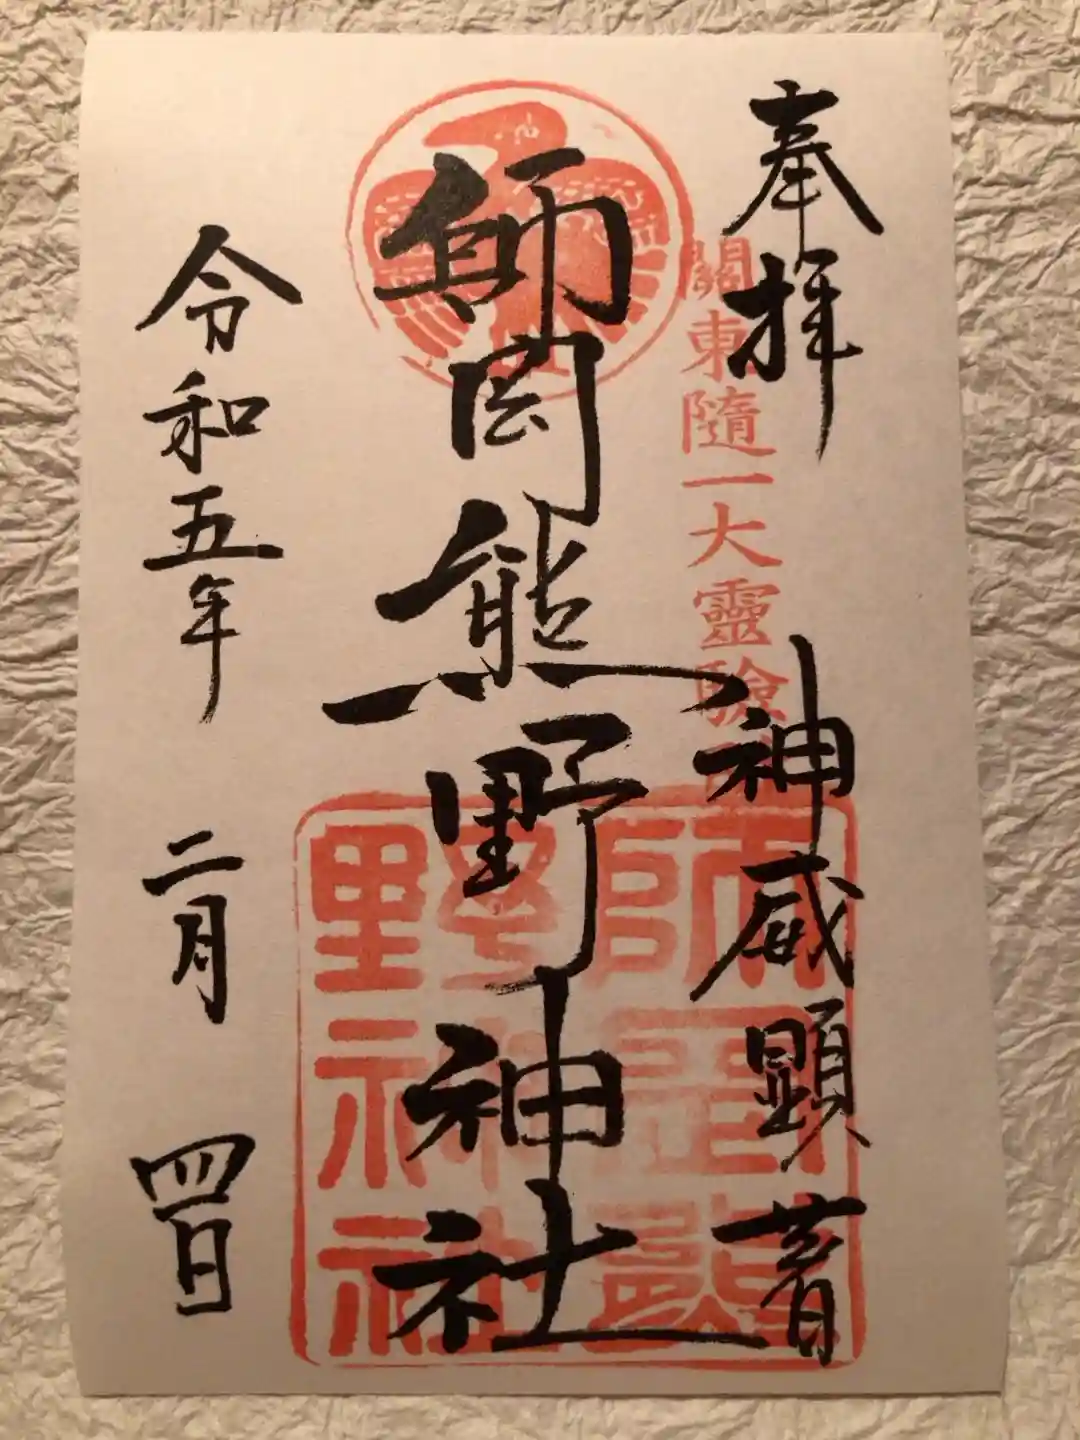 奉拝
神威顕著
関東随一大靈驗所
師岡熊野神社
師岡熊野神社
令和五年 二月 四日